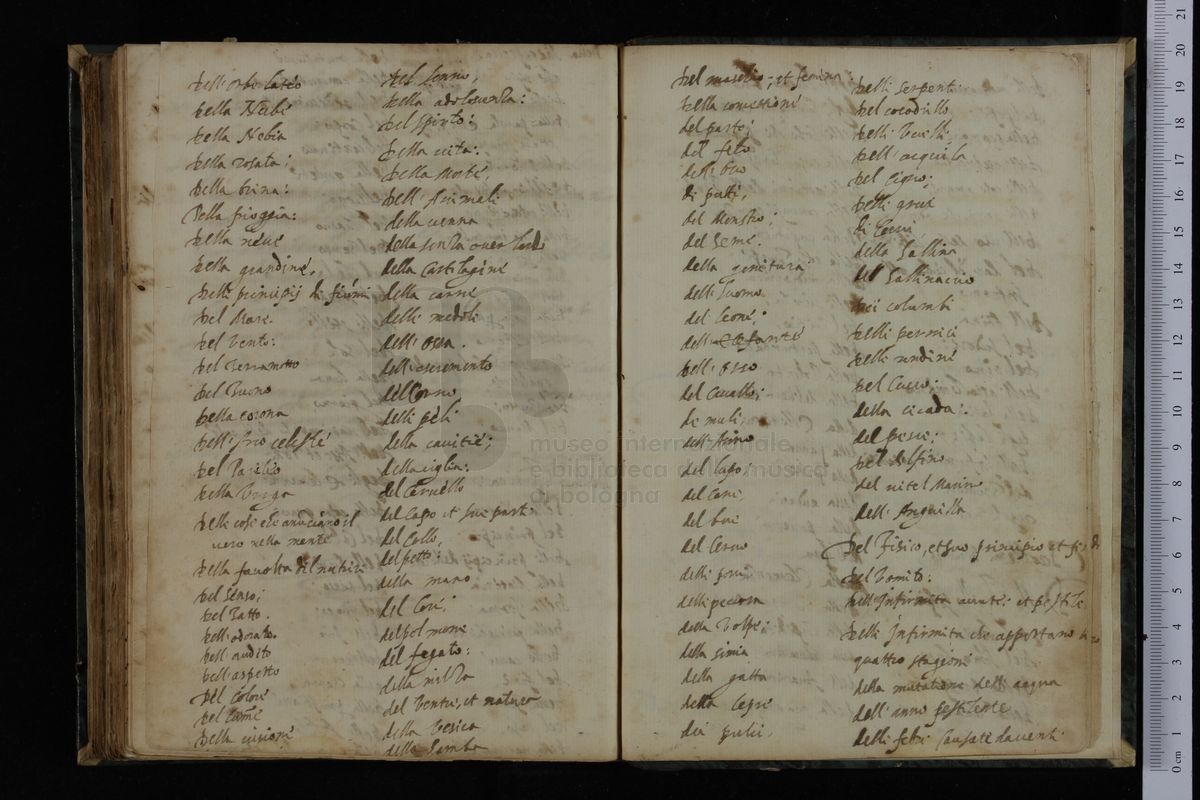 dell'orbe lateo
della Nube
della Nebia
della rosata:
della brina:
Della pioggia:
della neve
della grandine,
delli principij di fiumi
del Mare.
del Vento:
del Terramotto
del Tuono
della corona
dell'Irio celeste
del Parelio
della Virga
delle cose che anuciano il
vero nella mente
della facolta del nutrir
del Senso;
del Tatto.
dell'odorato.
dell'audito
dell'aspetto
del Colore
del Lume
della visione
del Sonno,
della adolescenza:
del Spirto:
della vita:
della Morte,
delli Animali
della venna
della
della Cartilagine
della carne
delli medoli
dell'ossa.
dell'escremento
del Corno
delli peli
della cavitie;
della ciglia:
del Cervello
del Capo et sue parti
del Collo,
del petto:
della mano
del Core;
del polmone
del fegato:
della milza
del Ventre, et natura
della Vesica
della Gamba
del maschio, et femina
della concettione
del parto;
del feto
dell'Ovo
di putti,
del Monstro;
del Seme.
della genitura
dell'huomo
del Leone;
dell'Elefante
dell'Orso
del Cavallo;
de muli,
dell'Asino
del Lupo;
del Cane,
del bue
del Cervo
delli porci
delli pecora
della Volpe;
della simia
della gatta
della Lepre
dei
delli Serpenti
del cocodrillo
delli Ucelli
dell'acquila
del Cigno;
delle grue
di
della Gallina
del Gallinaccio
dei columbi
delli pernici
delle rondine
del Cucco;
della cicada:
del pesce;
del delfino
del vitel Marino
dell'Anguilla
del Fisico, et suo principio et
del Vomito:
dell'Infirmita acute; et pestile
delli Infirmita che apportano
quattro stagioni
della mutatione dell'acqua
dell'anno pestilente
delli febri causate da venti
museo internazionale
e biblioteca della musica
di bologna
0 cm 1 2 3 4 5 6 7 8 9 10 11 12 13 14 15 16 17 18 19 20 21